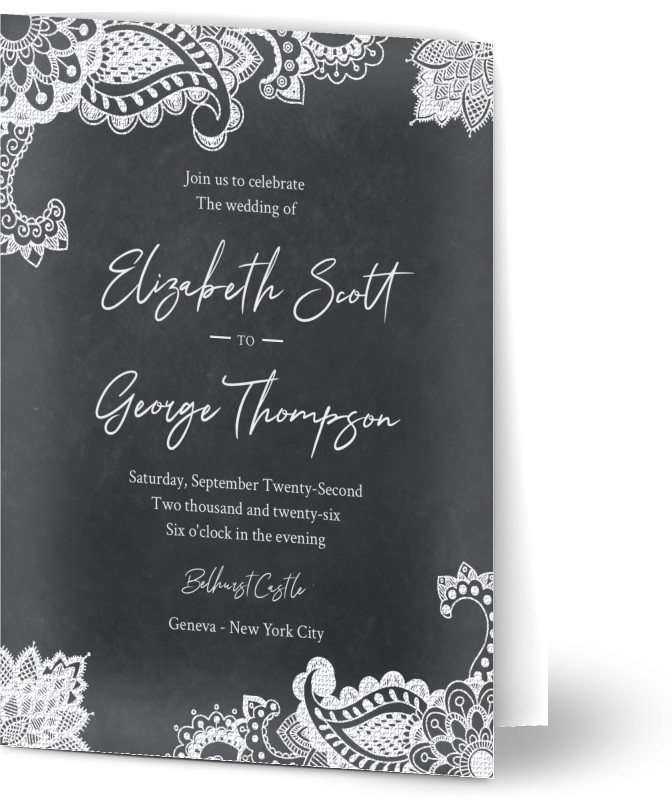 Join us to celebrate
The wedding of
Elizabeth Scott
TO
George Thompson
Saturday, September Twenty-Second
Two thousand and twenty-six
Six o'clock in the evening
Belhurst Castle
Geneva - New York City